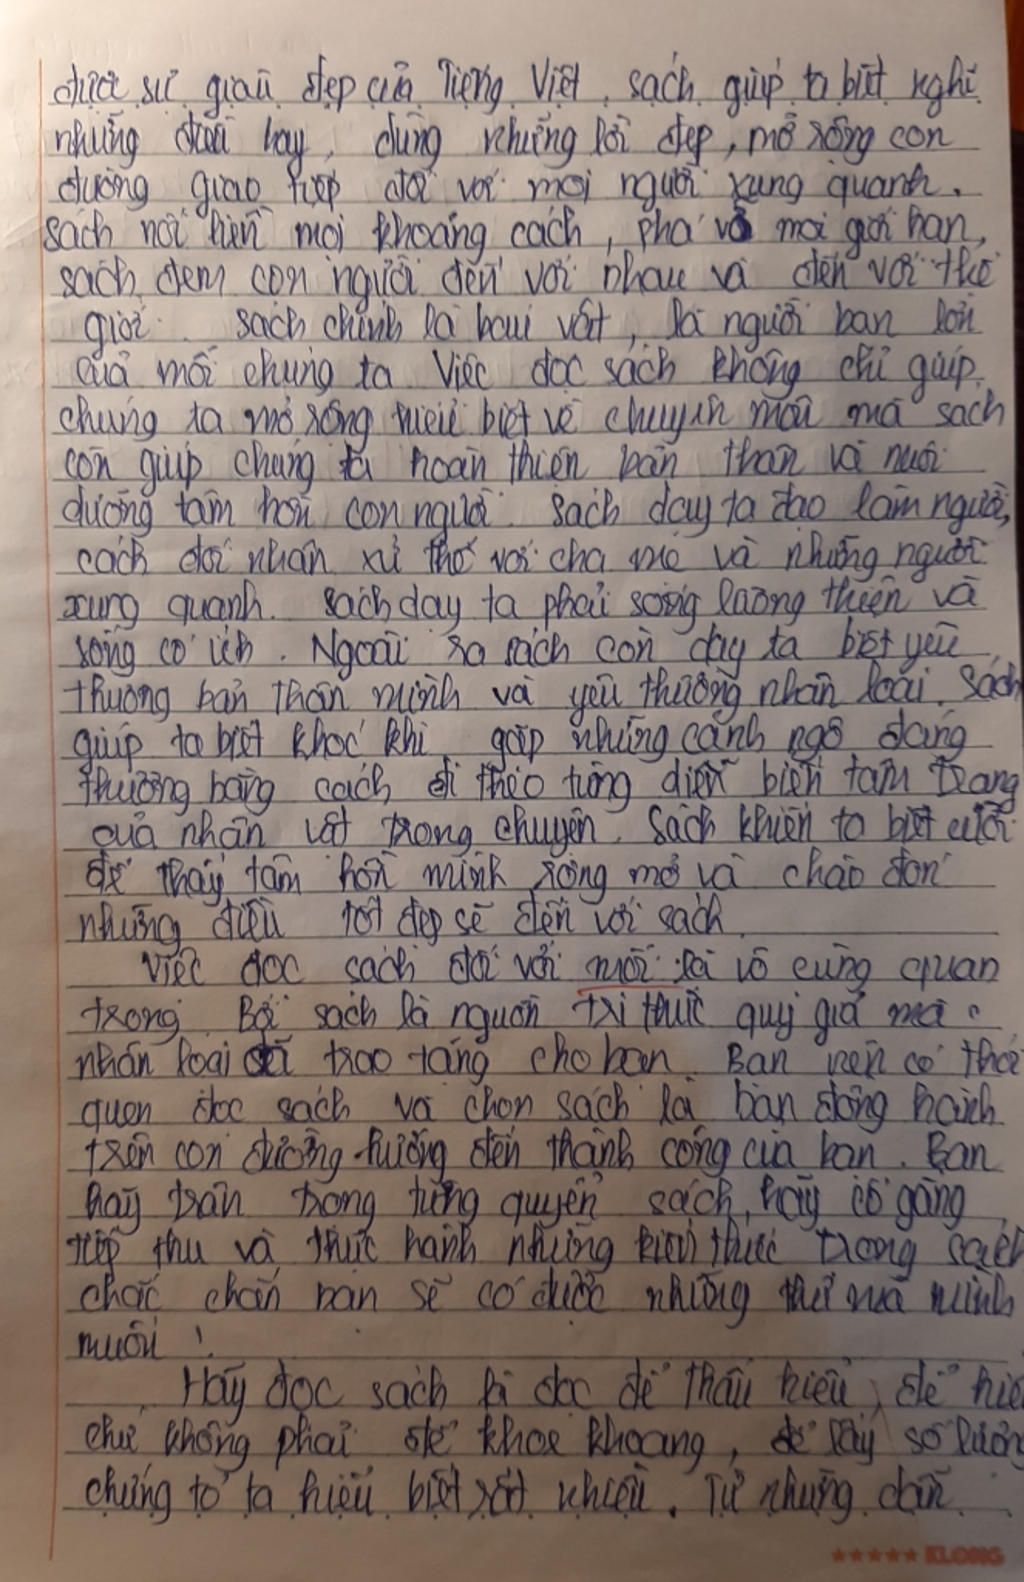 được sự giàu đẹp của Tiếng Việt, sách giúp ta biết nghĩ
những điều hay, dùng những lời đẹp, mở rộng con
đường giao tiếp đối với mọi người xung quanh.
sách nối liền mọi khoảng cách, phá vỡ mọi giới hạn,
sách đem con người đến với nhau và đến với thế
giới. sách chính là báu vật, là người bạn lớn
của mỗi chúng ta Việc đọc sách không chỉ giúp
chúng ta mở rộng hiểu biết về chuyên môn mà sách
còn giúp chúng ta hoàn thiện bản thân và nuôi
dưỡng tâm hồn con người. sách dạy ta đạo làm người,
cách đối nhân xử thế với cha mẹ và những người
xung quanh. sách dạy ta phải sống lương thiện và
sống có ích. Ngoài ra sách còn dạy ta biết yêu
thương bản thân mình và yêu thương nhân loại. Sách
giúp ta biết khóc khi gặp những cảnh ngộ đáng
thương bằng cách đi theo từng diễn biến tâm trạng
của nhân vật trong chuyện. Sách khiến ta biết cười
để thấy tâm hồn mình rộng mở và chào đón
những điều tốt đẹp sẽ đến với sách.
Việc đọc sách đối với mỗi là vô cùng quan
trọng. Bởi sách là nguồn tri thức quý giá mà
nhân loại đã trao tặng cho bạn. Bạn nên có thói
quen đọc sách và chọn sách là bạn đồng hành
trên con đường hướng đến thành công của bạn. Bạn
hãy trân trọng từng quyển sách, hãy cố gắng
tiếp thu và thực hành những kiến thức trong sách
chắc chắn bạn sẽ có được những thứ mà mình
muốn!
Hãy đọc sách là đọc để thấu hiểu, để hiể
chứ không phải để khoe khoang, để lấy số lượng
chứng tỏ ta hiểu biết rất nhiều. Từ những dẫn
KLONG